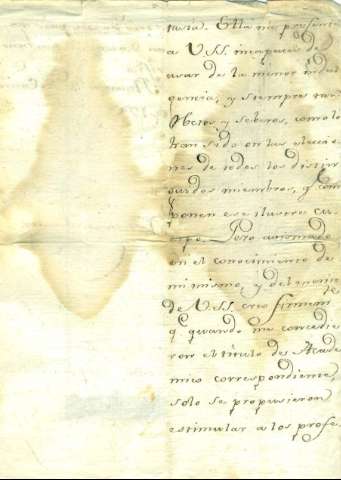 turia. Ella me presenta
a VSS. incapaces de
usar de la menor indul
gencia, y siempre
rectos y severos, como lo
han sido en las eleccio
nes de todos los distin
guidos miembros, q com
ponen ese ilustre cuer
po. Pero animado
en el conocimiento de
mi mismo, y del
de VSS. creo firmem
q quando me concedie
ron el titulo de Acade
mico correspondiente,
solo se propusieron
estimular a los profe